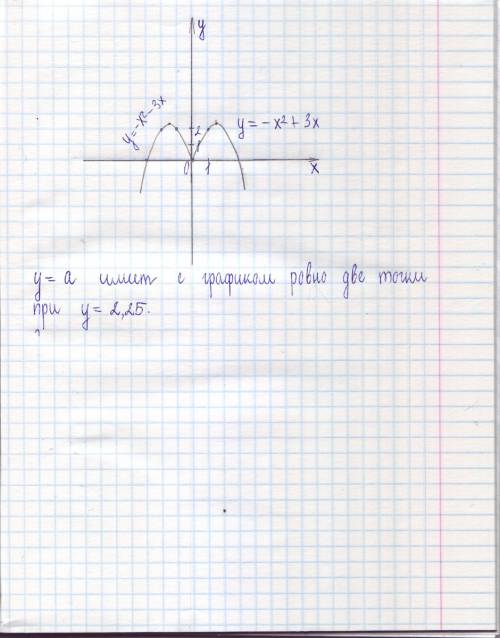 y
y=-x²-3x
y=-x²+3x
2
1
0 1 x
y=a имит с графиком ровно две точки
при y=2,25.